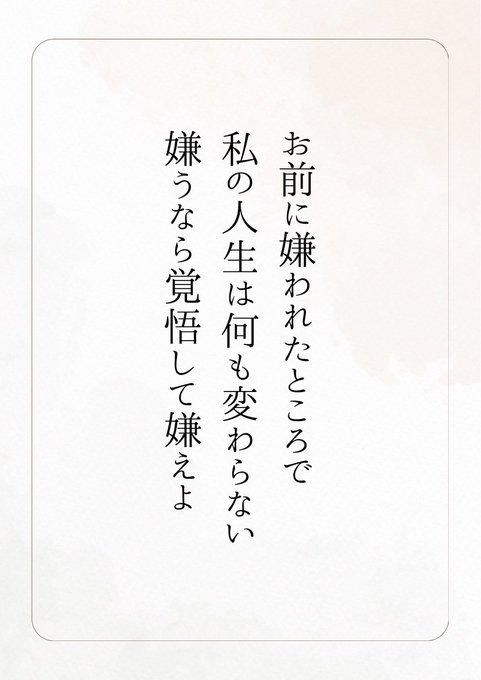 お前に嫌われたところで
私の人生は何も変わらない
嫌うなら覚悟して嫌えよ